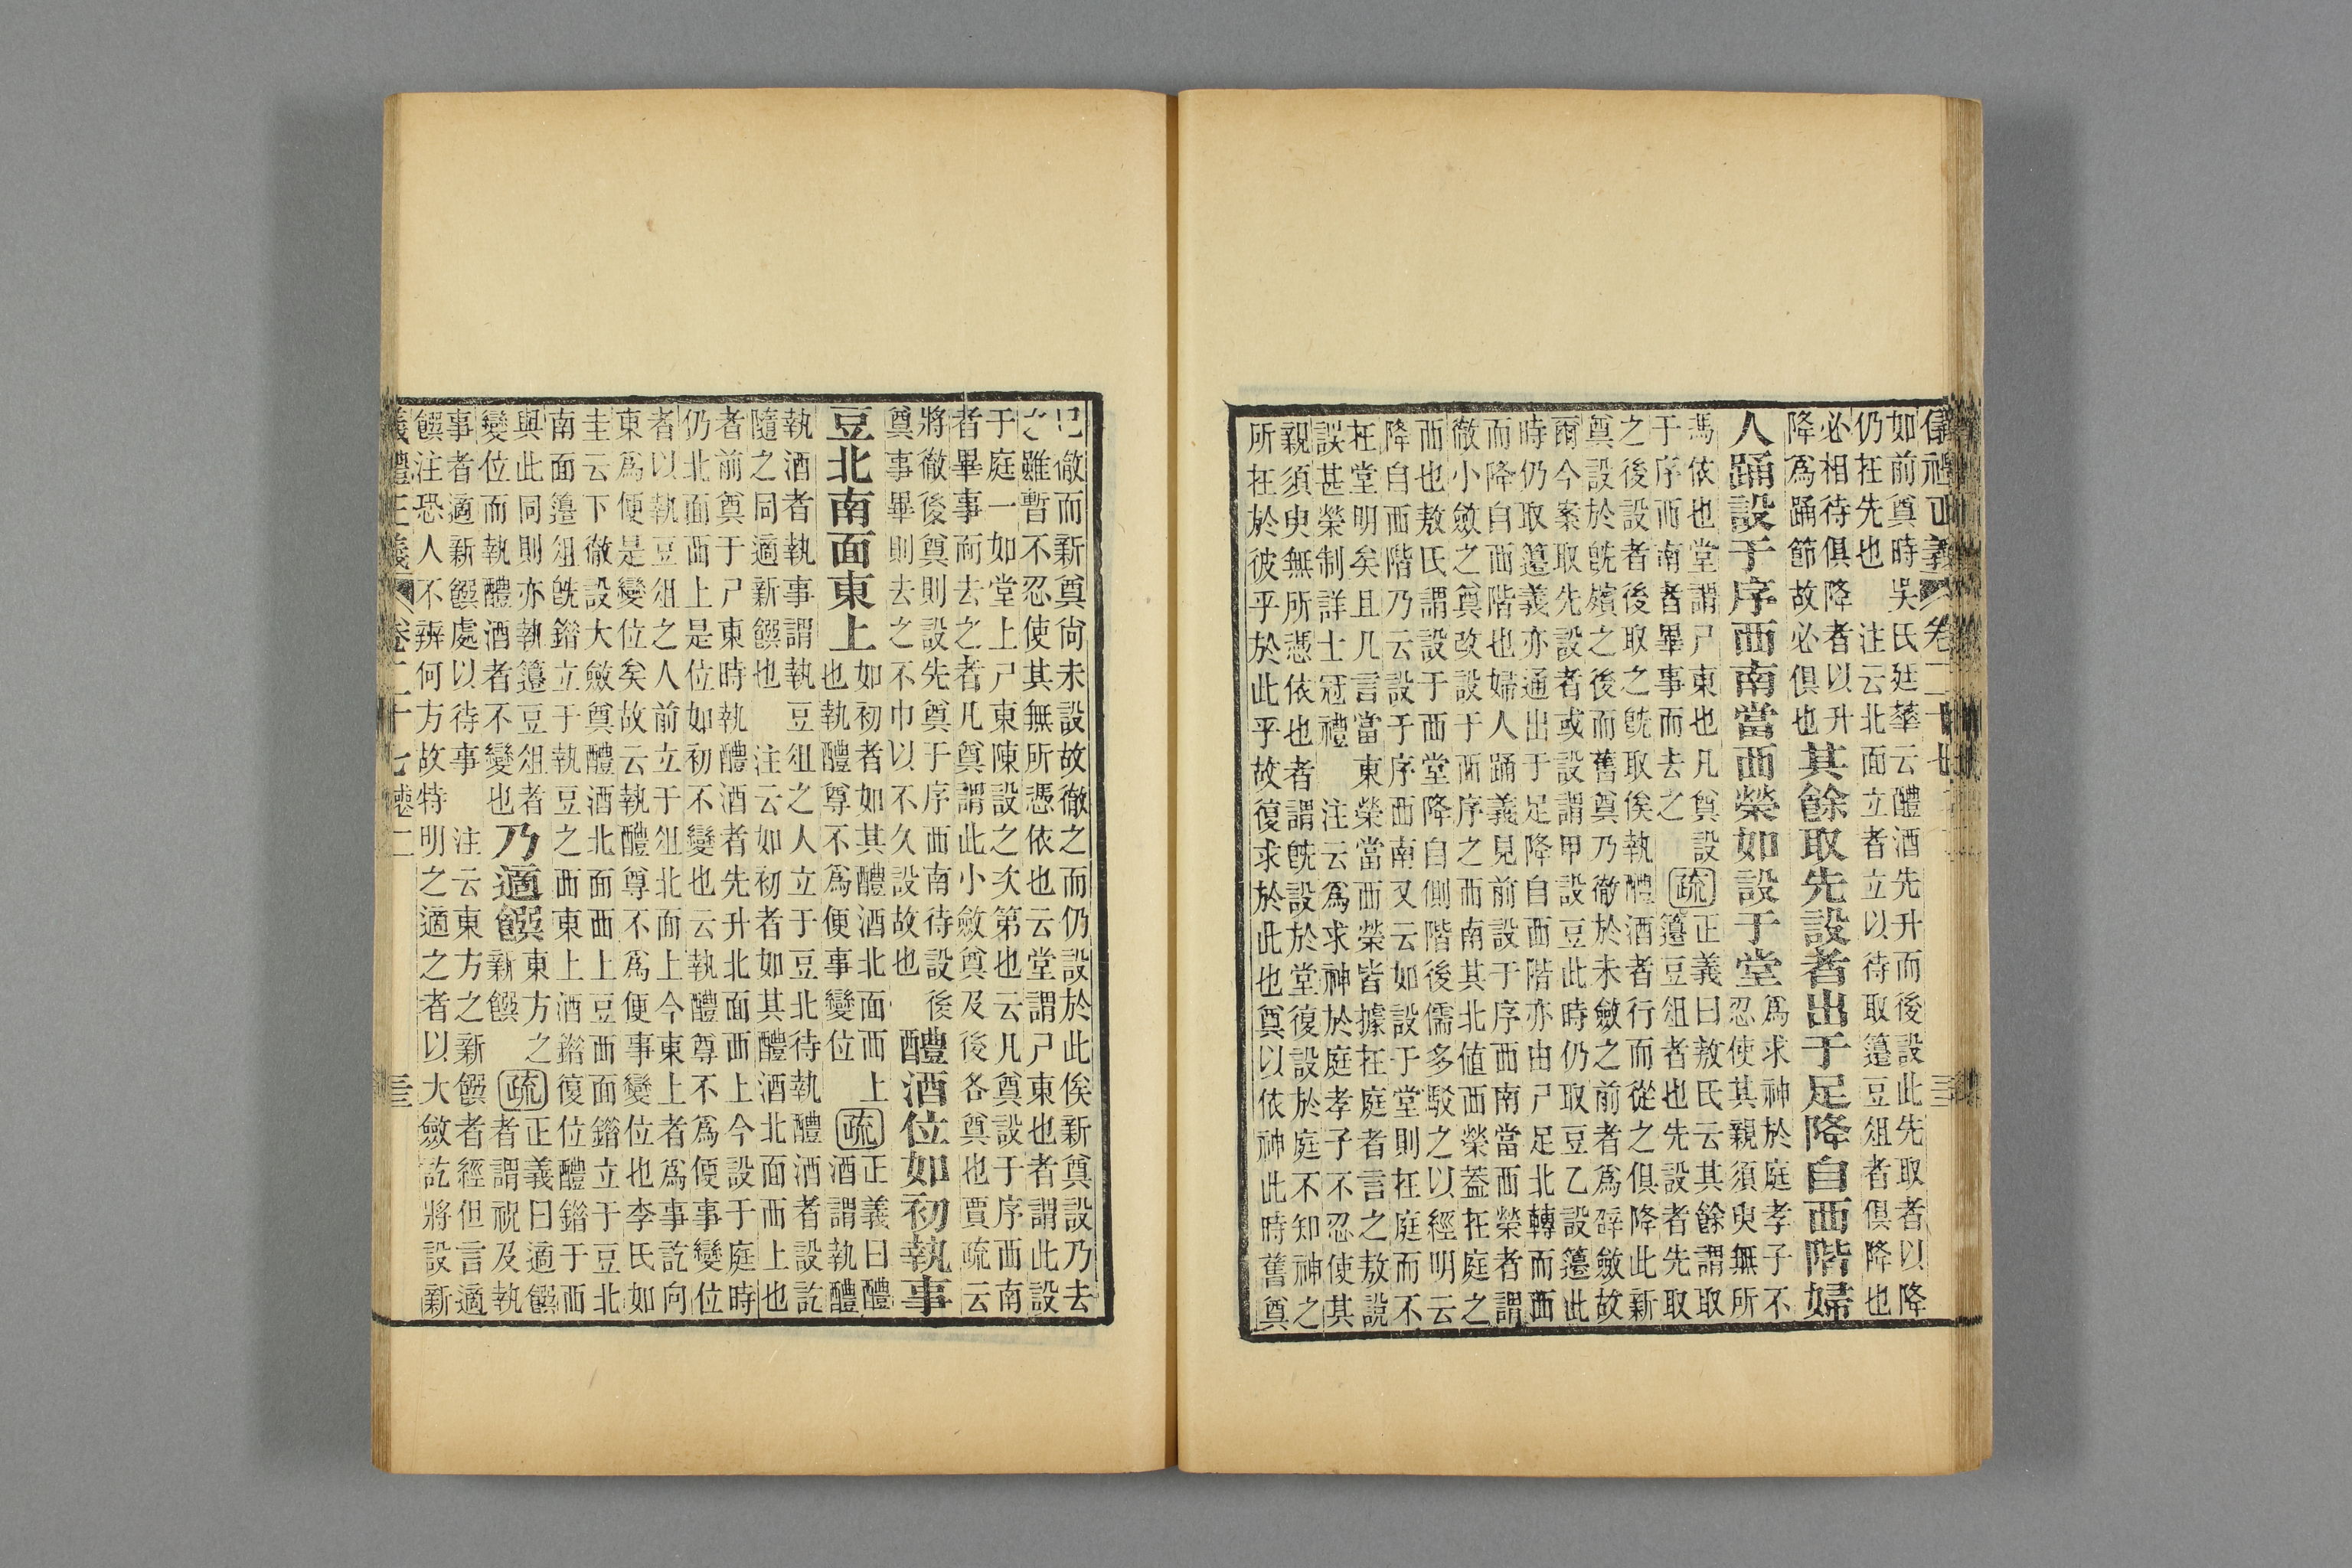 儀禮正義 卷二十七 三
如前奠時吳氏廷華云醴酒先升而後設此先取者以降
仍在先也 注云北面立者立以待取籩豆俎者俱降也
必相待俱降者以升
降爲踊節故必俱也 其餘取先設者出于足降自西階婦
人踊設于序西南當西榮如設于堂 爲求神於庭孝子不
忍使其親須臾無所
馮依也堂謂尸東也凡奠設
于序西南者畢事而去之 疏 正義曰敖氏云其餘謂取
籩豆俎者也先設者先取
之後設者後取之旣取俟執醴酒者行而從之俱降此新
奠設於旣殯之後而舊奠乃徹於未斂之前者爲辟斂故
爾今案取先設者或設謂甲設豆此時仍取豆乙設籩此
時仍取籩義亦通出于足降自西階亦由尸足北轉而西
而降自西階也婦人踊義見前設于序西南當西榮者謂
徹小斂之奠改設于西序之西南其北值西榮蓋在庭之
西也敖氏謂設于西堂降自側階後儒多駁之以經明云
降自西階乃云設于序西南又云如設于堂則在庭而不
在堂明矣且凡言當東榮當西榮皆據在庭者言之敖說
誤甚榮制詳士冠禮 注云爲求神於庭孝子不忍使其
親須臾無所憑依也者謂旣設於堂復設於庭不知神之
所在於彼乎於此乎故復求於此也奠以依神此時舊奠
已徹而新奠尚未設故徹之而仍設於此俟新奠設乃去
之雖暫不忍使其無所憑依也云堂謂尸東也者謂此設
于庭一如堂上尸東陳設之次第也云凡奠設于序西南
者畢事而去之者凡奠謂此小斂奠及後各奠也賈疏云
將徹後奠則設先奠于序西南待設後
奠事畢則去之不巾以不久設故也 醴酒位如初執事
豆北南面東上 如初者如其醴酒北面西上
也執醴尊不爲便事變位 疏 正義曰醴
酒謂執醴
執酒者執事謂執豆俎之人立于豆北待執醴酒者設訖
隨之同適新饌也 注云如初者如其醴酒北面西上也
者前奠于尸東時執醴酒者先升北面西上今設于庭時
仍北面西上是位如初不變也云執醴尊不爲便事變位
者以執豆俎之人前立于俎北面上今東上者爲事訖向
東爲便是變位矣故云執醴尊不爲便事變位也李氏如
圭云下徹設大斂奠醴酒北面西上豆西面錯立于豆北
南面籩俎旣錯立于執豆之西東上酒錯復位醴錯于西
與此同則亦執籩豆俎者
變位而執醴酒者不變也 乃適饌 東方之
新饌 疏 正義曰適饌
者謂祝及執
事者適新饌處以待事 注云東方之新饌者經但言適
饌注恐人不辨何方故特明之適之者以大斂訖將設新
儀禮正義 卷二十七 二 三